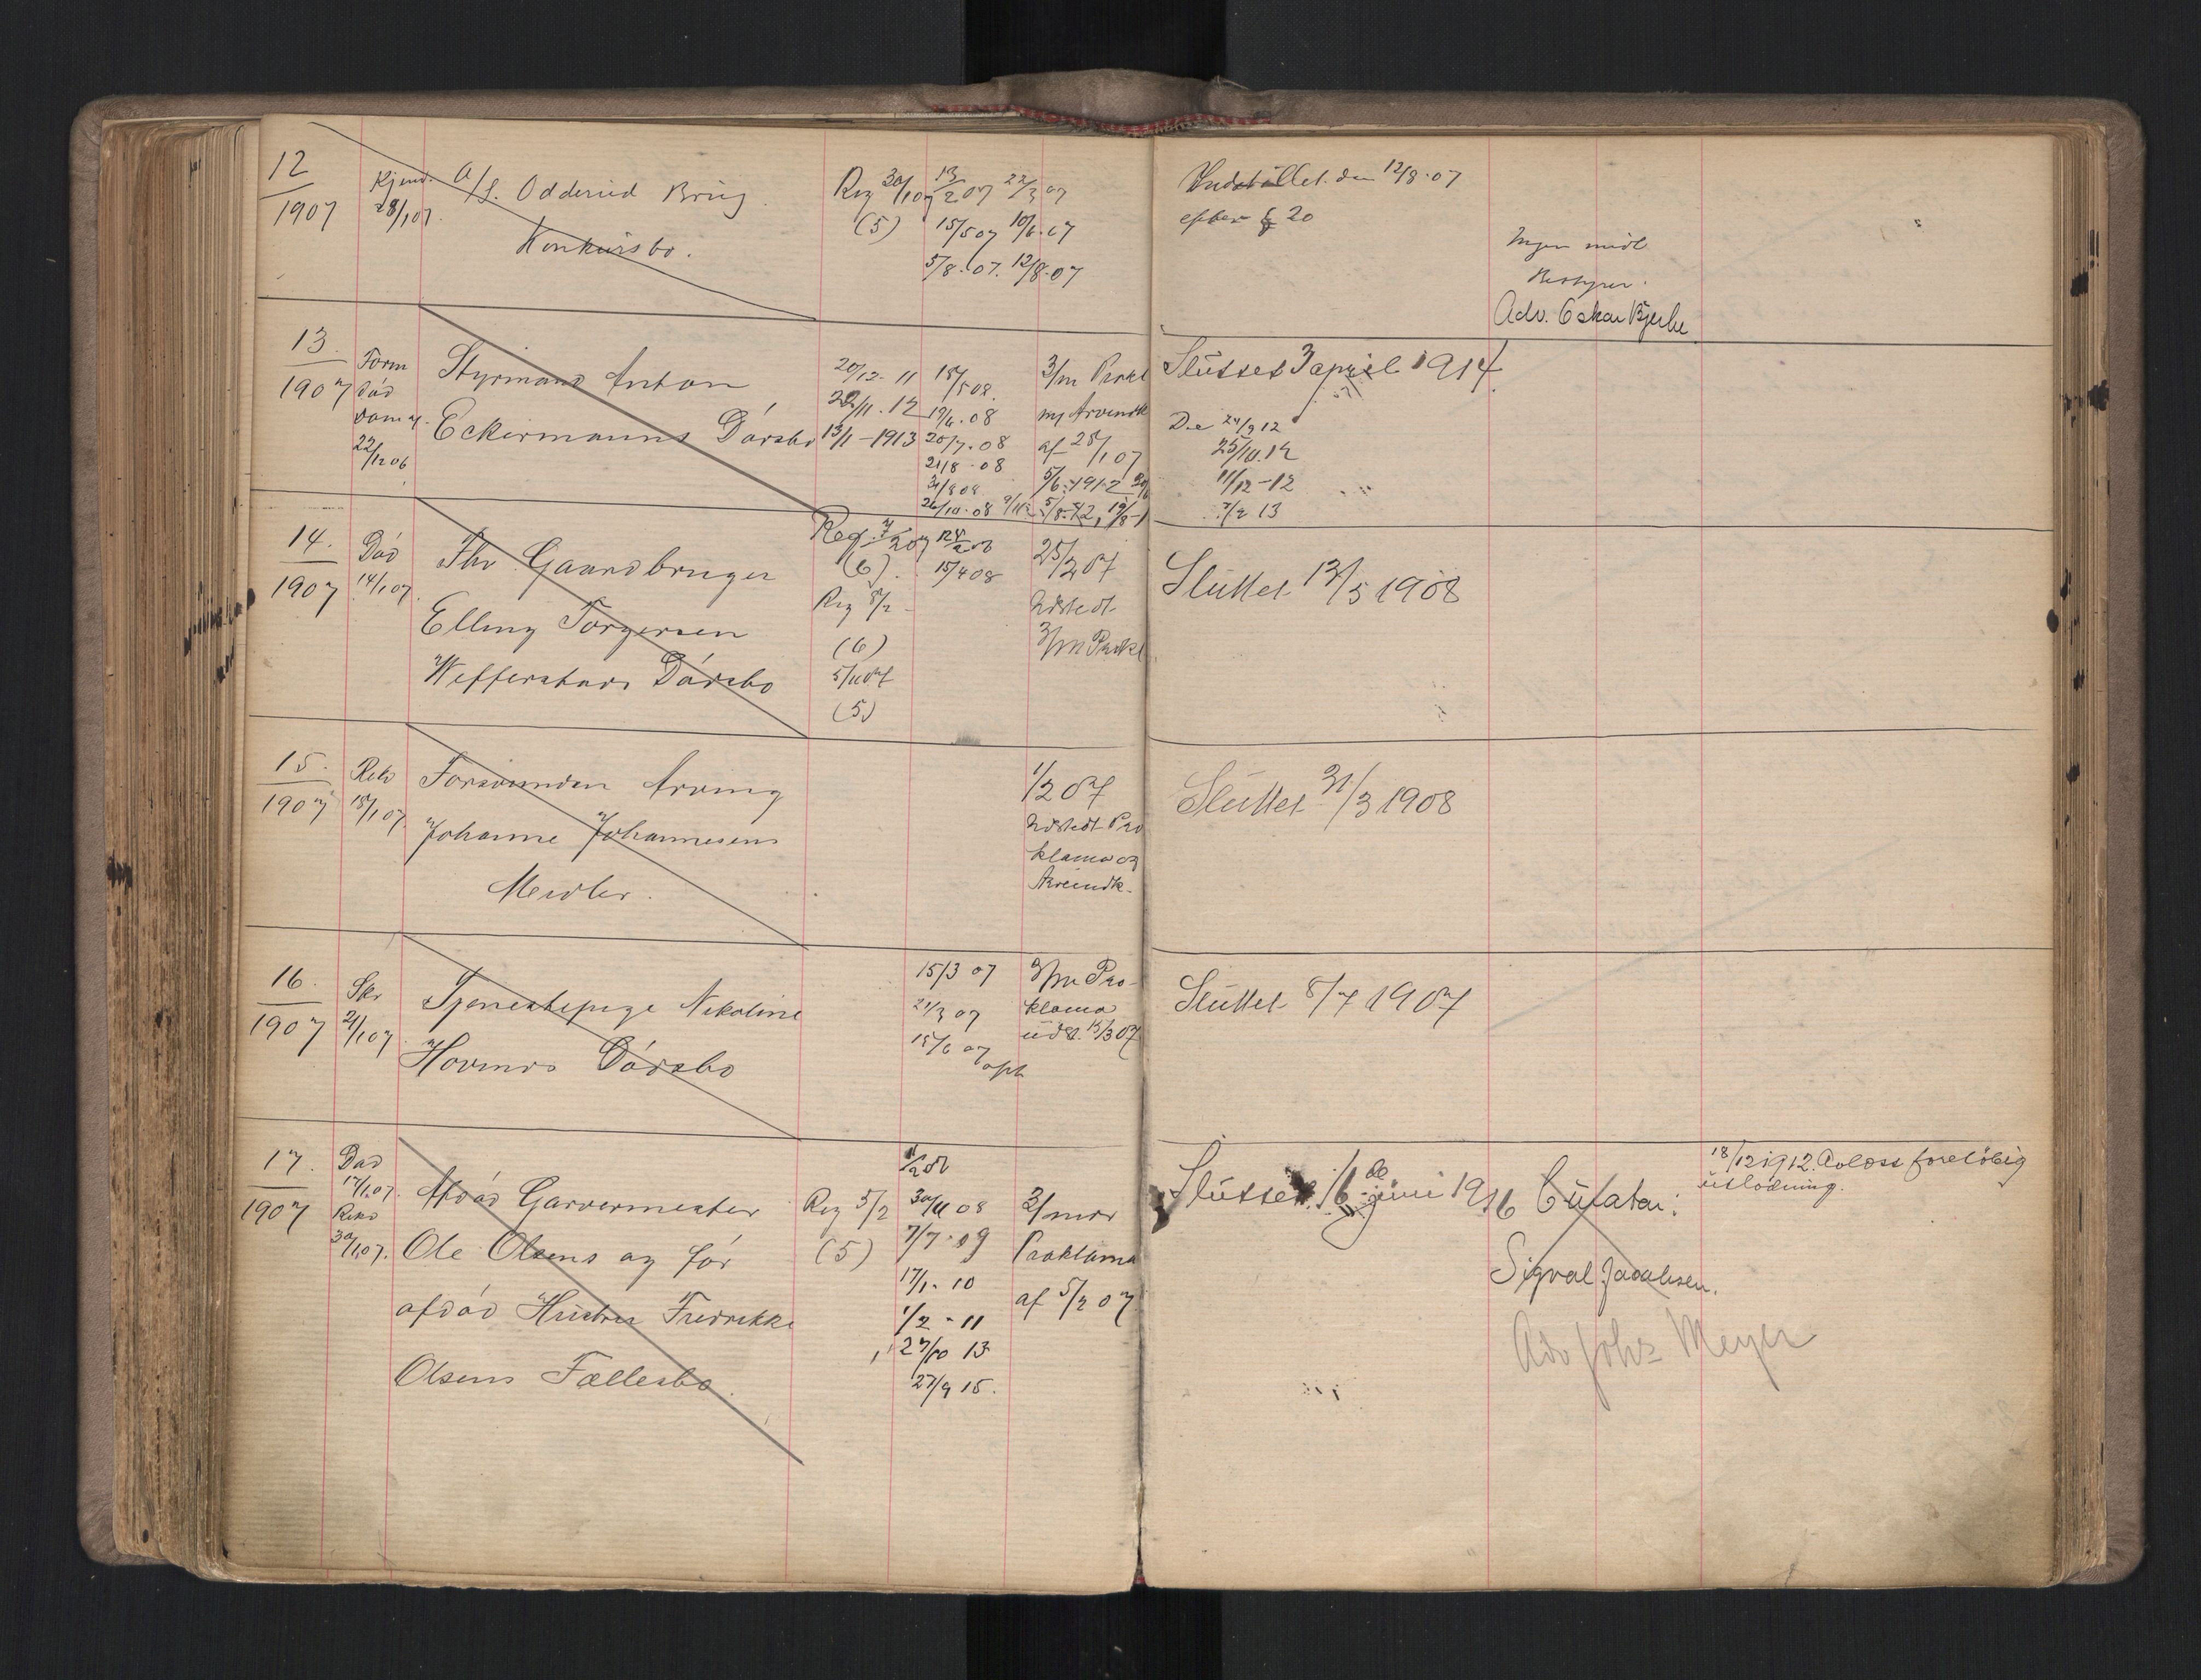 12
1907
Kjend.
28/1 07.
A/S. Odderud Brug
Konkursbo.
Reg 30/1 07
(5)
13/2 07 22/3 07
15/5 07 10/6.07
5/8.07. 12/8.07
Indstillet den 12/8.07
efter § 20
Ingen midl.
Bestyrer.
Adv. Oskar Bjerke
13.
1907
Form
død
22/12 06
Styrmand Anton
Eckermanns Dødsbo
20/12. 11
22/11. 12
13/1-1913
18/5 08.
19/6.08
20/7.08
21/8-08
31/8 08
26/10.08
3/m Prokl
af 28/1 07
Sluttet 3 april 1914
25/10.12
11/12-12
7/2 13
14.
1907
Død
14/1 07.
Fhv Gaardbruger
Elling Torgersen
Wefferstads Dødsbo
Reg. 7/2 07
(6).
Reg 8/2
(6)
5/11 07
(5)
15/4 08
25/2 07
Udstedt
3/m Prokl
Sluttet 13/5 1908
15.
1907
Rekv
18/1 07.
Forsvunden Arving
Johanne Johannesens
Midler.
1/2 07
Udstedt Pro
klama og
Arveindk.
Sluttet 31/3 1908
16.
1907
Skr
21/1 07.
Tjenestepige Nikoline
Hovinds Dødsbo
15/3 07
21/3 07
18/6 07
3/m Pro-
klama
udst. 15/3 07
Sluttet 8/7 1907
17.
1907
Død
17/1 07.
Rekv
30/1 07.
Afdød Garvermester
Ole Olsens og før
afdød Hustru Fredrikke
Olsens Fællesbo.
Reg 5/2
(5)
30/11 08
7/7.09
17/1.10
1/2-11
27/10 13
27/9 15.
3/mdrs
Proklama
af 5/2 07
Sluttet 16de juni 1916
Curator:
Sigval Jacobsen.
Adv Johs Meyer
18/12 1912. Avlost foreløbig
utlodning.